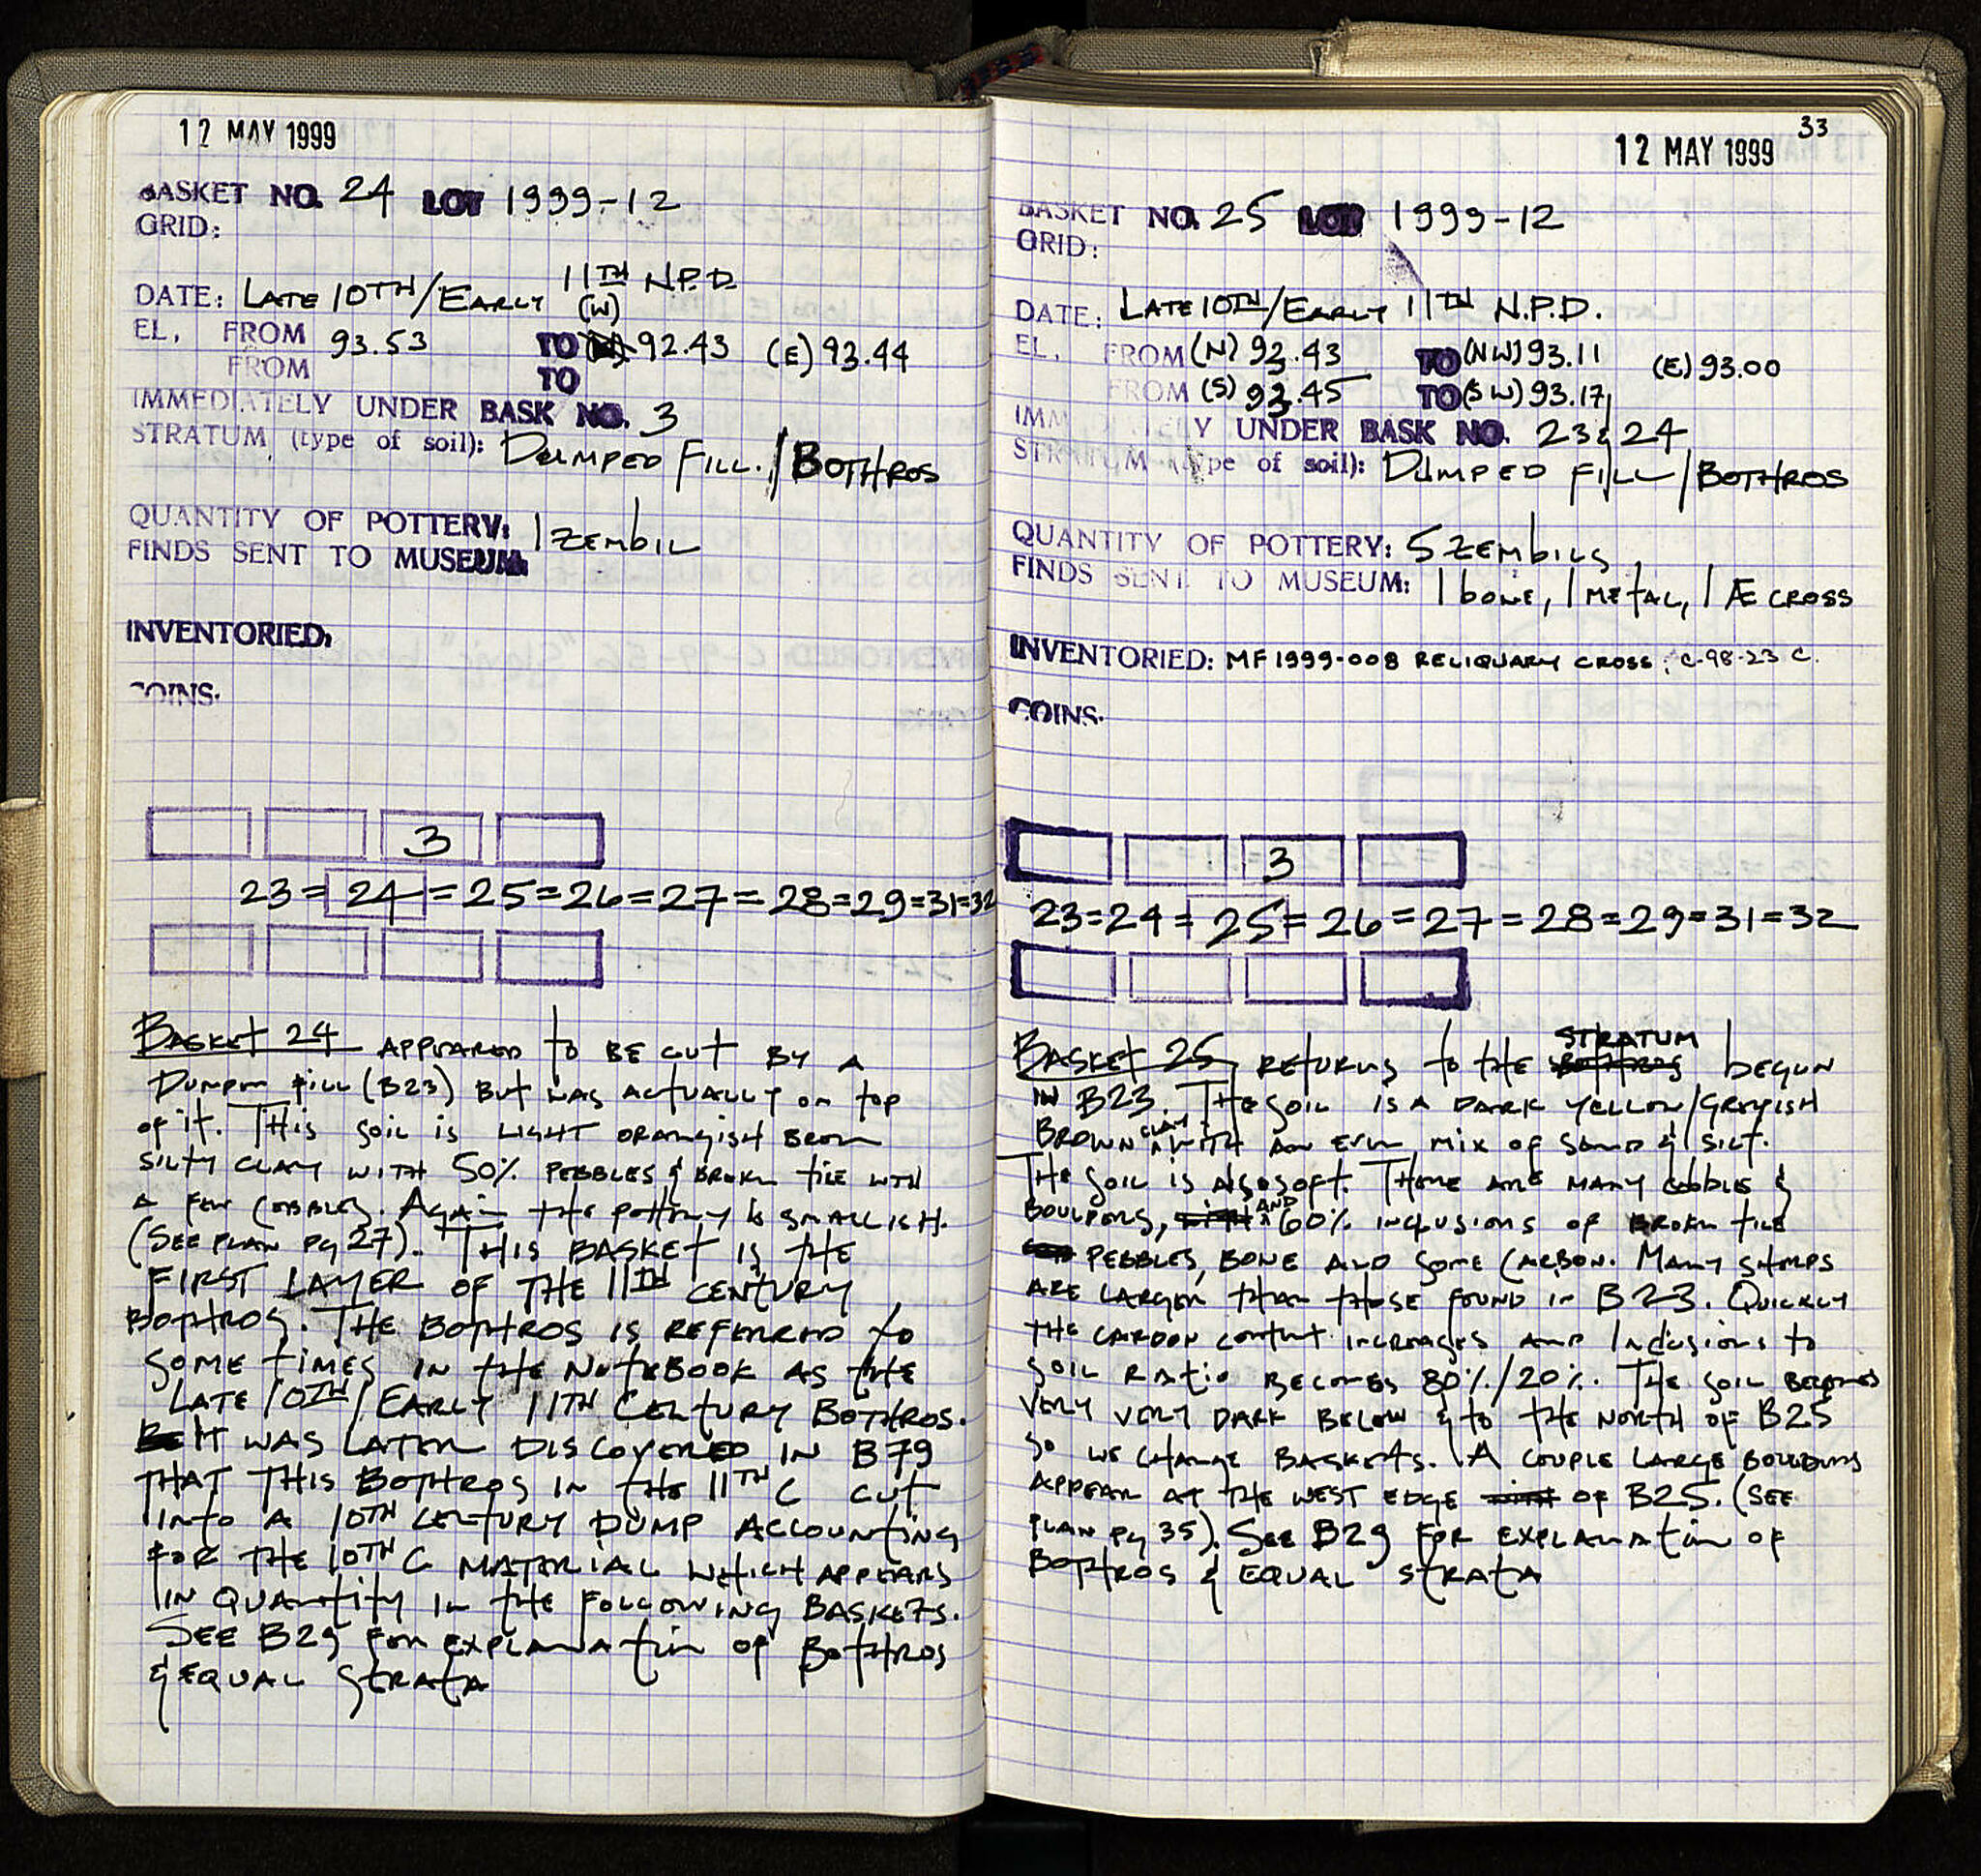 12 MAY 1999
BASKET NO. 24 LOT 1999-12
GRID:
DATE: LATE 10TH/EARLY 11TH N.P.D
(W)
EL. FROM 93.53 TO 92.43 (E) 93.44
FROM TO
IMMEDIATELY UNDER BASK NO. 3
STRATUM (type of soil): DUMPED FILL./BOTHROS
QUANTITY OF POTTERY: 1 ZEMBIL
FINDS SENT TO MUSEUM:
INVENTORIED:
COINS.
3
23=24=25=26=27=28=29=31=32
BASKET 24 APPEARED to BE CUT BY A
DUMPED FILL (B23) BUT WAS ACTUALLY on top
of it. THIS SOIL is LIGHT ORANGISH BROWN
SILTY CLAY WITH 50% PEBBLES & BROKEN TILE WITH
A FEW COBBLES. AGAIN the pottery is SMALLISH.
(SEE PLAN pg 27). THIS BASKET IS THE
FIRST LAYER OF THE 11TH CENTURY
BOTHROS. THE BOTHROS IS REFERRED to
SOMETIMES IN THE NOTEBOOK AS THE
LATE 10TH/EARLY 11TH CENTURY BOTHROS.
IT WAS LATER DISCOVERED IN B79
THAT THIS BOTHROS IN the 11TH C CUT
INTO A 10TH CENTURY DUMP ACCOUNTING
FOR THE 10TH C MATERIAL WHICH APPEARS
IN QUANTITY IN THE FOLLOWING BASKETS.
SEE B29 FOR EXPLANATION OF BOTHROS
& EQUAL STRATA
33
12 MAY 1999
BASKET NO. 25 LOT 1999-12
GRID:
DATE: LATE 10TH/EARLY 11TH N.P.D.
EL. FROM (N) 93.43 TO (NW) 93.11 (E) 93.00
FROM (S) 93.45 TO (SW) 93.17
IMMEDIATELY UNDER BASK NO. 23 & 24
STRATUM (type of soil): DUMPED FILL/BOTHROS
QUANTITY OF POTTERY: 5 ZEMBILS
FINDS SENT TO MUSEUM: 1 bone, 1 METAL, 1 Æ CROSS
INVENTORIED: MF 1999-008 RELIQUARY CROSS; C-98-23 C.
COINS.
3
23=24=25=26=27=28=29=31=32
BASKET 25 RETURNS to the STRATUM BEGUN
IN B23. THE SOIL IS A DARK YELLOW/GREYISH
BROWN CLAY WITH AN EVEN MIX OF SAND & SILT.
THE SOIL IS ALSO SOFT. THERE ARE MANY COBBLES &
BOULDERS, AND 60% INCLUSIONS OF BROKEN TILE
PEBBLES, BONE AND SOME CARBON. MANY SHERDS
ARE LARGER THAN THOSE FOUND IN B23. QUICKLY
THE CARBON CONTENT INCREASES AND INCLUSIONS to
SOIL RATIO BECOMES 80%/20%. THE SOIL BECOMES
VERY VERY DARK BELOW & to THE NORTH OF B25
SO WE CHANGE BASKETS. A COUPLE LARGE BOULDERS
APPEAR AT THE WEST EDGE OF B25. (SEE
PLAN pg 35). SEE B29 FOR EXPLANATION OF
BOTHROS & EQUAL STRATA